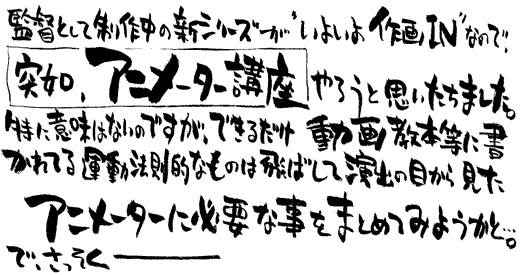 監督として制作中の新シリーズが“いよいよ作画IN”なので、
突如、アニメーター講座やろうと思いたちました。
特に意味はないのですが、できるだけ動画教本等に書
かれてる運動法則的なものは飛ばして演出の目から見た
アニメーターに必要な事をまとめてみようかと…。
で、さっそく———